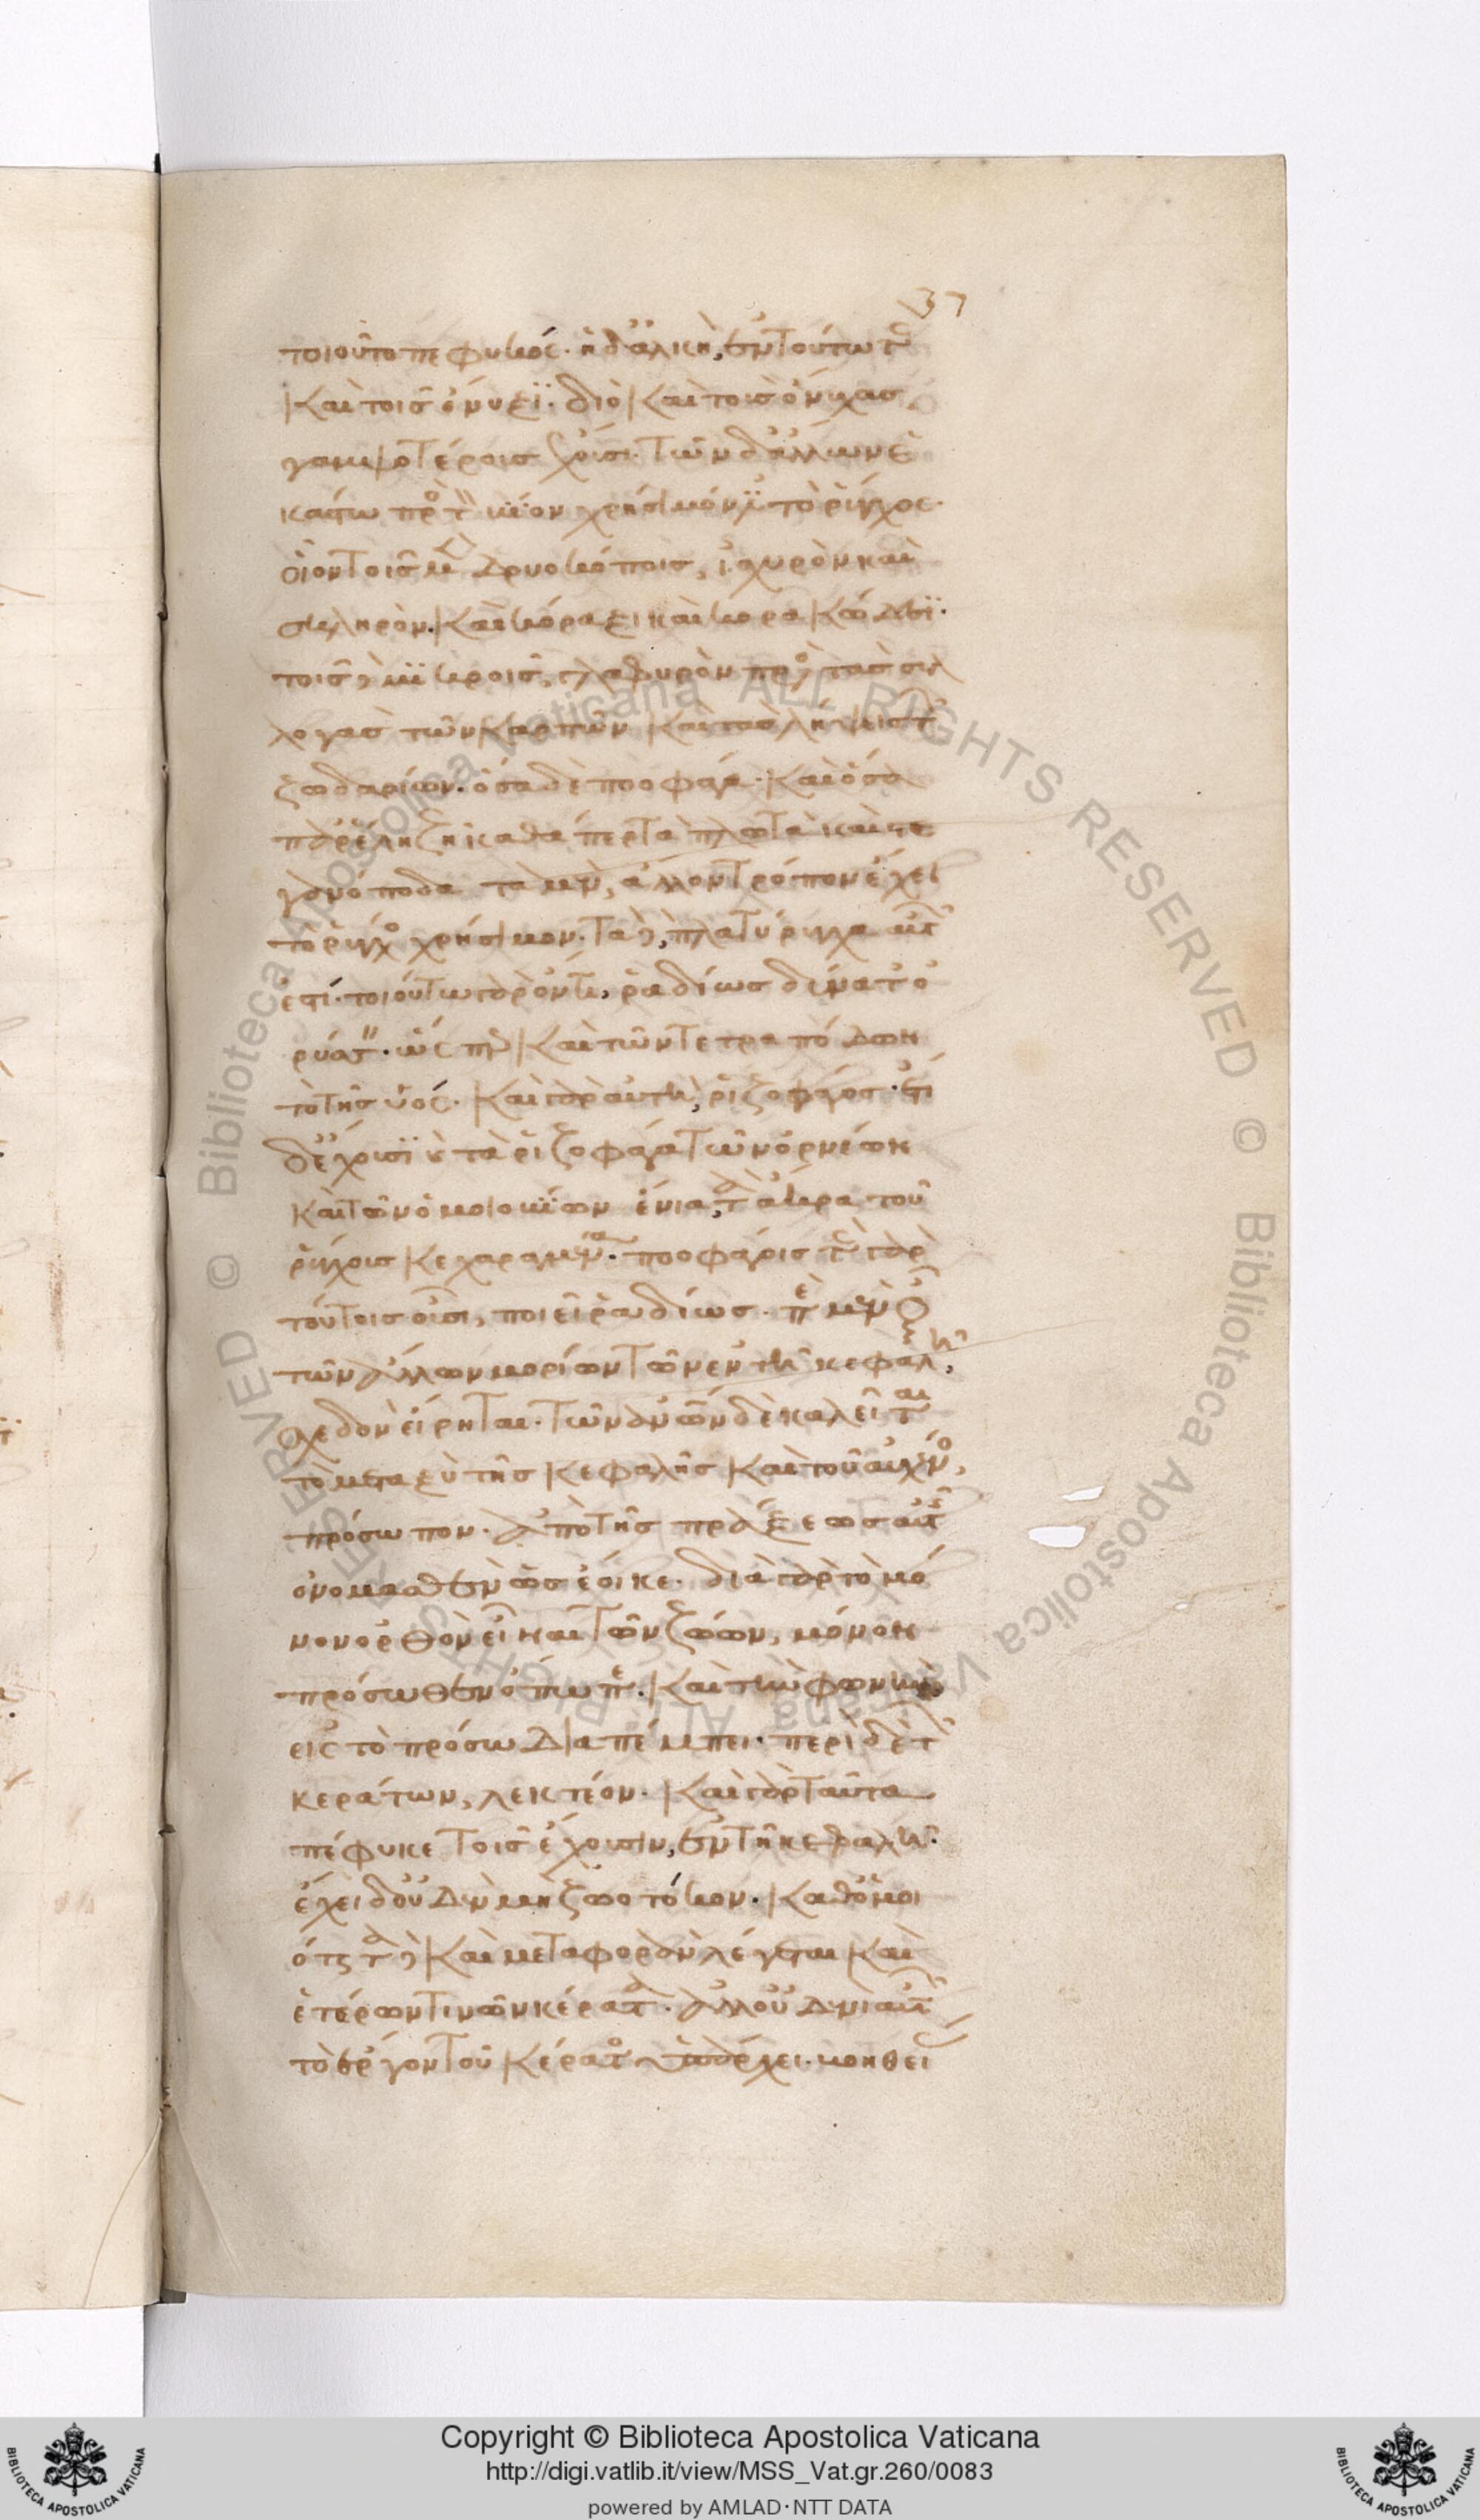 37
τοιοῦτο πεφυκός. ἡ δ' ἀλκὴ, ἐν τούτω τε
καὶ τοῖς ὄνυξι. διὸ καὶ τοὺς ὄνυχας
γαμψοτέρους ἔχουσι. τῶν δ' ἄλλων ἑ
κάστω πρὸς τὸν βίον χρήσιμόν ἐστι τὸ ρύγχος.
οἷον τοῖς μὲν δρυοκόποις, ἰσχυρὸν καὶ
σκληρὸν. καὶ κόραξι καὶ κορακώδεσι.
τοῖς δὲ μικροῖς, γλαφυρὸν πρὸς τὰς συλ
λογὰς τῶν καρπῶν καὶ τὰς λήψεις τῶν
ζωδαρίων. ὅσα δὲ ποοφάγα. καὶ ὅσα
παρ' ἕλη ζῆ καθάπερ τὰ πλωτὰ καὶ στε
γανόποδα τὰ μὲν, ἄλλον τρόπον ἔχει
τὸ ρύγχος χρήσιμον. τὰ δὲ, πλατύρυγχα αὐτῶν
ἐστί. τοιούτω γὰρ ὄντι, ραδίως δύναται ὀ
ρύττειν. ὥσπερ καὶ τῶν τετραπόδων
τὸ τῆς ὑός. καὶ γὰρ αὕτη, ριζοφάγος. ἔτι
δ' ἔχουσι καὶ τὰ ριζοφάγα τῶν ὀρνέων
καὶ τῶν ὁμοιοβίων ἔνια, τὰ ἄκρα τοῦ
ρύγχους κεχαραγμένα. ποοφάγοις τε γὰρ
τούτοις οὖσι, ποιεῖ ραδίως. περὶ μὲν οὖν
τῶν ἄλλων μορίων τῶν ἐν τῆ κεφαλῆ,
σχεδὸν εἴρηται. τῶν ἀνθρώπων δὲ καλεῖται
τὸ μεταξὺ τῆς κεφαλῆς καὶ τοῦ αὐχένος,
πρόσωπον. ἀπὸ τῆς πράξεως αὐτῆς
ὀνομασθὲν ὡς ἔοικε. διὰ γὰρ τὸ μό
νον ὀρθὸν εἶναι τῶν ζώων, μόνον
πρόσωθεν ὄπωπε. καὶ τὴν φωνὴν
εἰς τὸ πρόσω διαπέμπει. περὶ δὲ τῶν
κεράτων, λεκτέον. καὶ γὰρ ταῦτα
πέφυκε τοῖς ἔχουσιν, ἐν τῆ κεφαλῆ.
ἔχει δ' οὐδὲν μὴ ζωοτόκον. καθ' ὁμοι
ότητα δὲ καὶ μεταφορὰν λέγεται καὶ
ἑτέρων τινῶν κέρατα. ἀλλ' οὐδενὶ αὐτῶν
τὸ ἔργον τοῦ κέρατος ὑπάρχει. βοηθεί
Copyright © Biblioteca Apostolica Vaticana
http://digi.vatlib.it/view/MSS_Vat.gr.260/0083
powered by AMLAD·NTT DATA